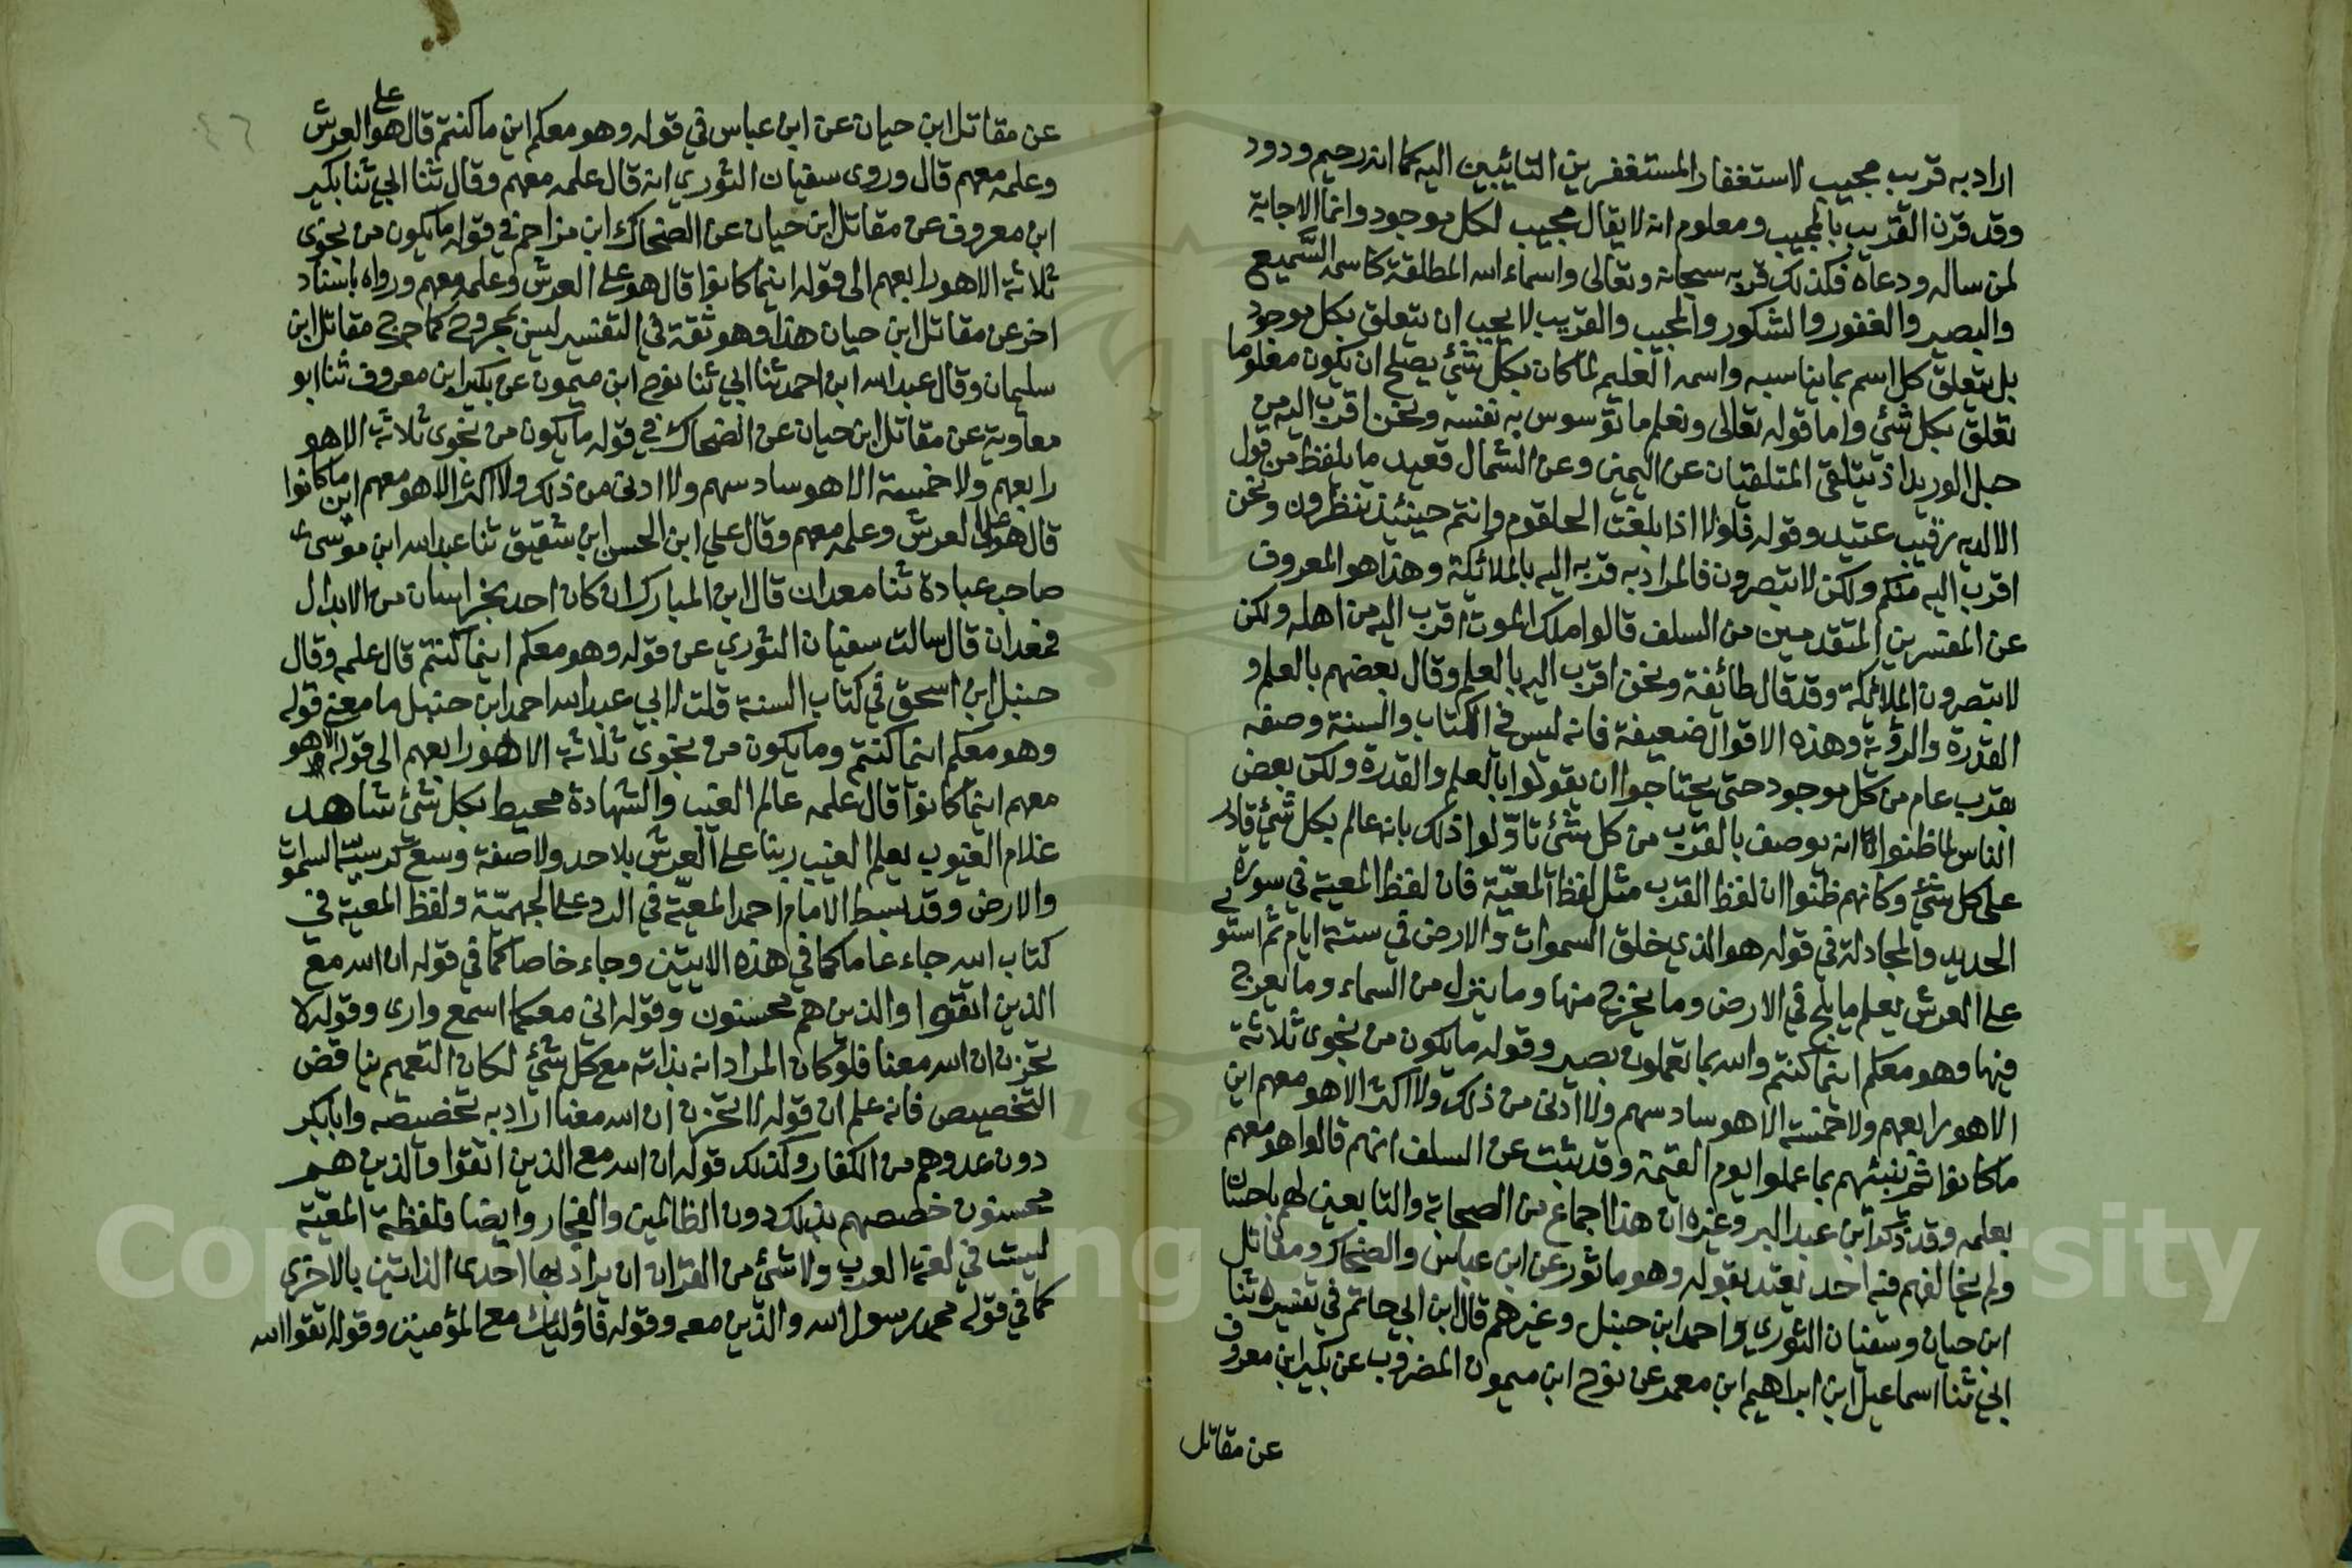 اراد به قريب مجيب لاستغفار المستغفرين التائبين اليه كما انه رحيم ودود
وقد قرن القريب بالمجيب ومعلوم انه لا يقال مجيب لكل موجود وانما الاجابة
لمن ساله ودعاه فكذلك قربه سبحانه وتعالى واسماء الله المطلقة كاسمه السميع
والبصير والغفور والشكور والمجيب والقريب لا يجب ان يتعلق بكل موجود
بل يتعلق كل اسم بما يناسبه واسمه العليم لما كان بكل شئ يصلح ان يكون معلوما
تعلق بكل شئ واما قوله تعالى ونعلم ما توسوس به نفسه ونحن اقرب اليه من
حبل الوريد اذ يتلقى المتلقيان عن اليمين وعن الشمال قعيد ما يلفظ من قول
الا لديه رقيب عتيد وقوله فلولا اذا بلغت الحلقوم وانتم حينئذ تنظرون ونحن
اقرب اليه منكم ولكن لا تبصرون فالمراد به قربه اليه بالملائكة وهذا هو المعروف
عن المفسرين المتقدمين من السلف قالوا ملك الموت اقرب اليه من اهله ولكن
لا تبصرون الملائكة وقد قال طائفة ونحن اقرب اليه بالعلم وقال بعضهم بالعلم و
القدرة والرؤية وهذه الاقوال ضعيفة فانه ليس في الكتاب والسنة وصفه
بقرب عام من كل موجود حتى يحتاجوا ان يقولوا بالعلم والقدرة ولكن بعض
الناس لما ظنوا انه يوصف بالقرب من كل شئ تاوّلوا ذلك بانه عالم بكل شئ قادر
على كل شئ وكانهم ظنوا ان لفظ القرب مثل لفظ المعيّة فان لفظ المعية في سورة
الحديد والمجادلة في قوله هو الذي خلق السموات والارض في ستة ايام ثم استوى
على العرش يعلم ما يلج في الارض وما يخرج منها وما ينزل من السماء وما يعرج
فيها وهو معكم اينما كنتم والله بما تعملون بصير وقوله ما يكون من نجوى ثلاثة
الا هو رابعهم ولا خمسة الا هو سادسهم ولا ادنى من ذلك ولا اكثر الا هو معهم اين
ما كانوا ثم ينبئهم بما عملوا يوم القيمة وقد ثبت عن السلف انهم قالوا هو معهم
بعلمه وقد ذكر ابن عبد البر وغيره ان هذا اجماع من الصحابة والتابعين لهم باحسان
ولم يخالفهم فيه احد يعتد بقوله وهو ماثور عن ابن عباس والضحاك ومقاتل
ابن حيان وسفيان الثوري واحمد ابن حنبل وغيرهم قال ابن ابي حاتم في تفسيره ثنا
ابي ثنا اسماعيل ابن ابراهيم ابن معمر عن نوح ابن ميمون المضروب عن بكير ابن معروف
عن مقاتل
عن مقاتل ابن حيان عن ابن عباس في قوله وهو معكم اين ما كنتم قال هو على العرش
وعلمه معهم قال وروى سفيان الثوري انه قال علمه معهم وقال ثنا ابي ثنا بكير
ابن معروف عن مقاتل ابن حيان عن الضحاك ابن مزاحم في قوله ما يكون من نجوى
ثلاثة الا هو رابعهم الى قوله اينما كانوا قال هو على العرش وعلمه معهم ورواه باسناد
اخر عن مقاتل ابن حيان هذا وهو ثقة في التفسير ليس بمجروح كما جرح مقاتل ابن
سليمان وقال عبد الله ابن احمد ثنا ابي ثنا نوح ابن ميمون عن بكير ابن معروف ثنا ابو
معاوية عن مقاتل ابن حيان عن الضحاك في قوله ما يكون من نجوى ثلاثة الا هو
رابعهم ولا خمسة الا هو سادسهم ولا ادنى من ذلك ولا اكثر الا هو معهم اين ما كانوا
قال هو على العرش وعلمه معهم وقال علي ابن الحسن ابن شقيق ثنا عبد الله ابن موسى
صاحب عبادة ثنا معدان قال ابن المبارك ان كان احد بخراسان من الابدال
فمعدان قال سالت سفيان الثوري عن قوله وهو معكم اينما كنتم قال علمه وقال
حنبل ابن اسحق في كتاب السنة قلت لابي عبد الله احمد ابن حنبل ما معنى قوله
وهو معكم اينما كنتم وما يكون من نجوى ثلاثة الا هو رابعهم الى قوله الا هو
معهم اينما كانوا قال علمه عالم الغيب والشهادة محيط بكل شئ شاهد
علام الغيوب يعلم الغيب ربنا على العرش بلا حد ولا صفة وسع كرسيه السموات
والارض وقد بسط الامام احمد المعيّة في الرد على الجهميّة ولفظ المعية في
كتاب الله جاء عاما كما في هذه الايتين وجاء خاصا كما في قوله ان الله مع
الذين اتقوا والذين هم محسنون وقوله انني معكما اسمع وارى وقوله لا
تحزن ان الله معنا فلو كان المراد انه بذاته مع كل شئ لكان التعميم يناقض
التخصيص فانه علم ان قوله لا تحزن ان الله معنا اراد به تخصيصه وابا بكر
دون عدوهم من الكفار وكذلك قوله ان الله مع الذين اتقوا والذين هم
محسنون خصصهم بذلك دون الظالمين والفجار وايضا فلفظة المعيّة
ليست في لغة العرب ولا شئ من القران ان يراد بها احدى الذاتين بالاخرى
كما في قوله محمد رسول الله والذين معه وقوله فاؤلئك مع المؤمنين وقوله اتقوا الله
Copyright © King Saud University